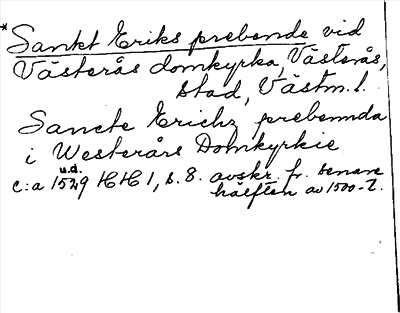 *Sankt Eriks prebende vid
Västerås domkyrka, Västerås,
stad, Västm. l.
Sancte Erichz prebennda
i Westerårs Domkyrkie
u.d.
c:a 1529 HH 1, s. 8. avskr. fr. senare
hälften av 1500-t.